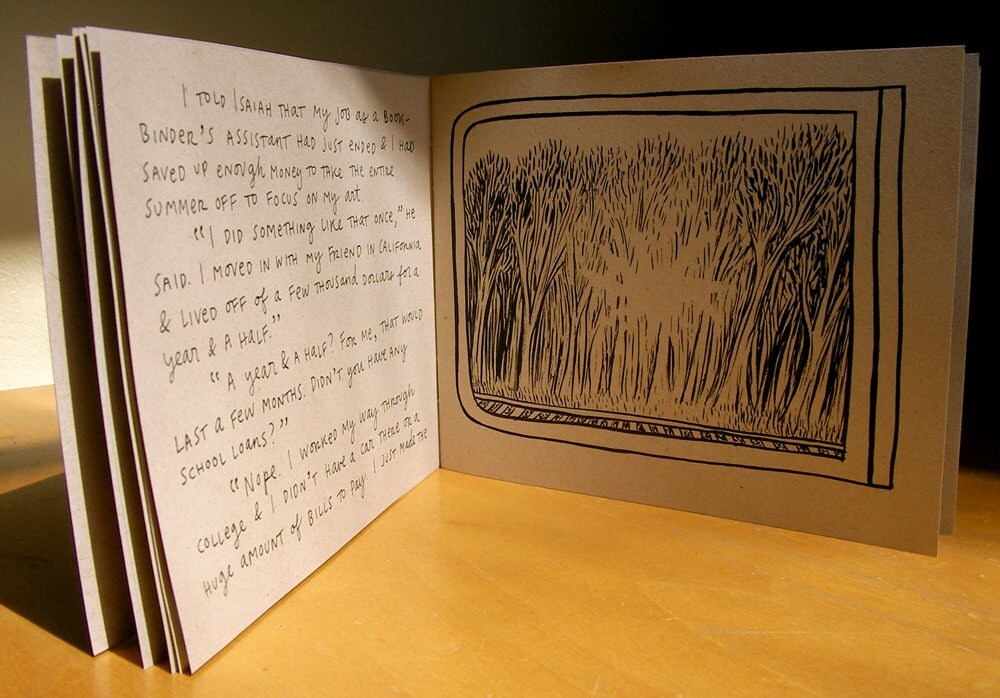 I TOLD ISAIAH THAT MY JOB AS A BOOK-
BINDER'S ASSISTANT HAD JUST ENDED & I HAD
SAVED UP ENOUGH MONEY TO TAKE THE ENTIRE
SUMMER OFF TO FOCUS ON MY ART.
"I DID SOMETHING LIKE THAT ONCE," HE
SAID. I MOVED IN WITH MY FRIEND IN CALIFORNIA
& LIVED OFF OF A FEW THOUSAND DOLLARS FOR A
YEAR & A HALF."
"A YEAR & A HALF? FOR ME, THAT WOULD
LAST A FEW MONTHS. DIDN'T YOU HAVE ANY
SCHOOL LOANS?"
"NOPE. I WORKED MY WAY THROUGH
COLLEGE & I DIDN'T HAVE A CAR THERE OR A
HUGE AMOUNT OF BILLS TO PAY. I JUST MADE THE